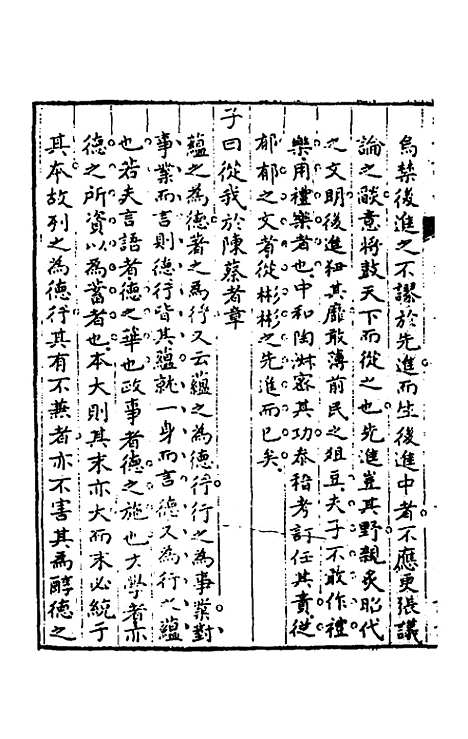 烏禁後進之不謬於先進而生後進中者不應更張議
論之燄意將鼓天下而從之也先進豈其野親炙昭代
之文明後進狃其靡敢薄前民之俎豆夫子不敢作禮
樂用禮樂者也中和陶淋齋其功泰稽考訂任其責從
郁郁之文者從彬彬之先進而已矣
子曰從我於陳蔡者章
蘊之為德著之為行又云蘊之為德行行之為事業對
事業而言則德行皆其蘊就一身而言德又為行之蘊
也若夫言語者德之華也政事者德之施也文學者亦
德之所資以為蓄者也本大則其末亦大而末必統于
其本故列之為德行其有不兼者亦不害其為醇德之